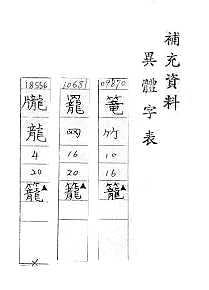 補充資料
異體字表
09870
篭
竹
10
16
籠▲
10651
网
16
20
籠▲
18556
龍
4
20
籠▲